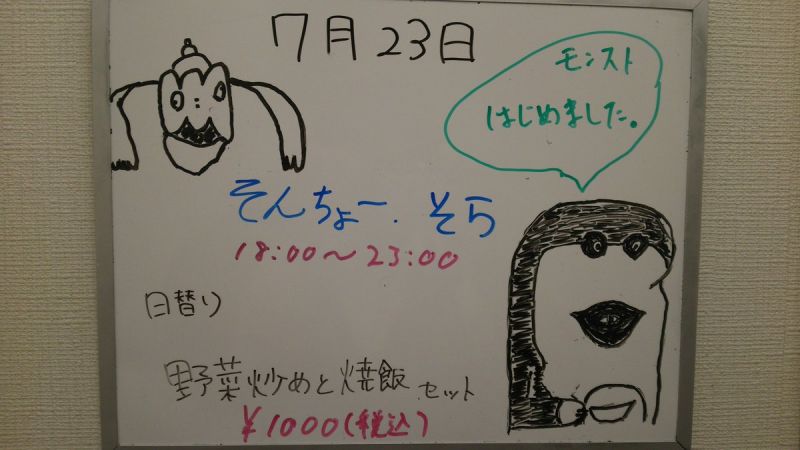 7月23日
モンスト
はじめました。
そんちょー. そら
18:00～23:00
日替り
野菜炒めと焼飯 セット
¥1000(税込)